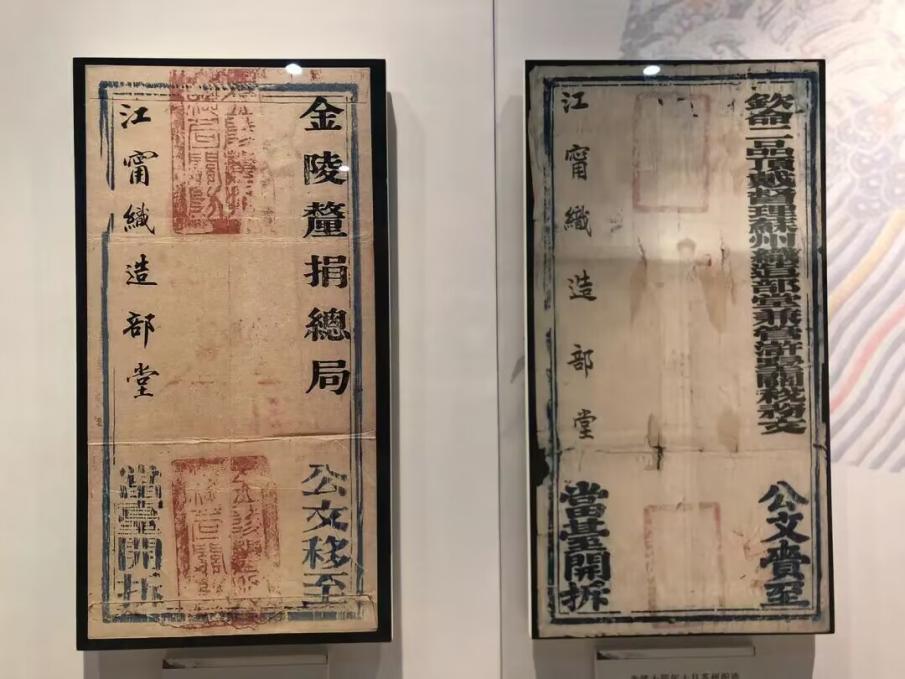 金陵釐捐總局
公文移至
江甯織造部堂
當臺開拆
欽命二品頂戴督理蘇州織造部堂兼管滸墅關稅務文
公文賫至
江甯織造部堂
當臺開拆